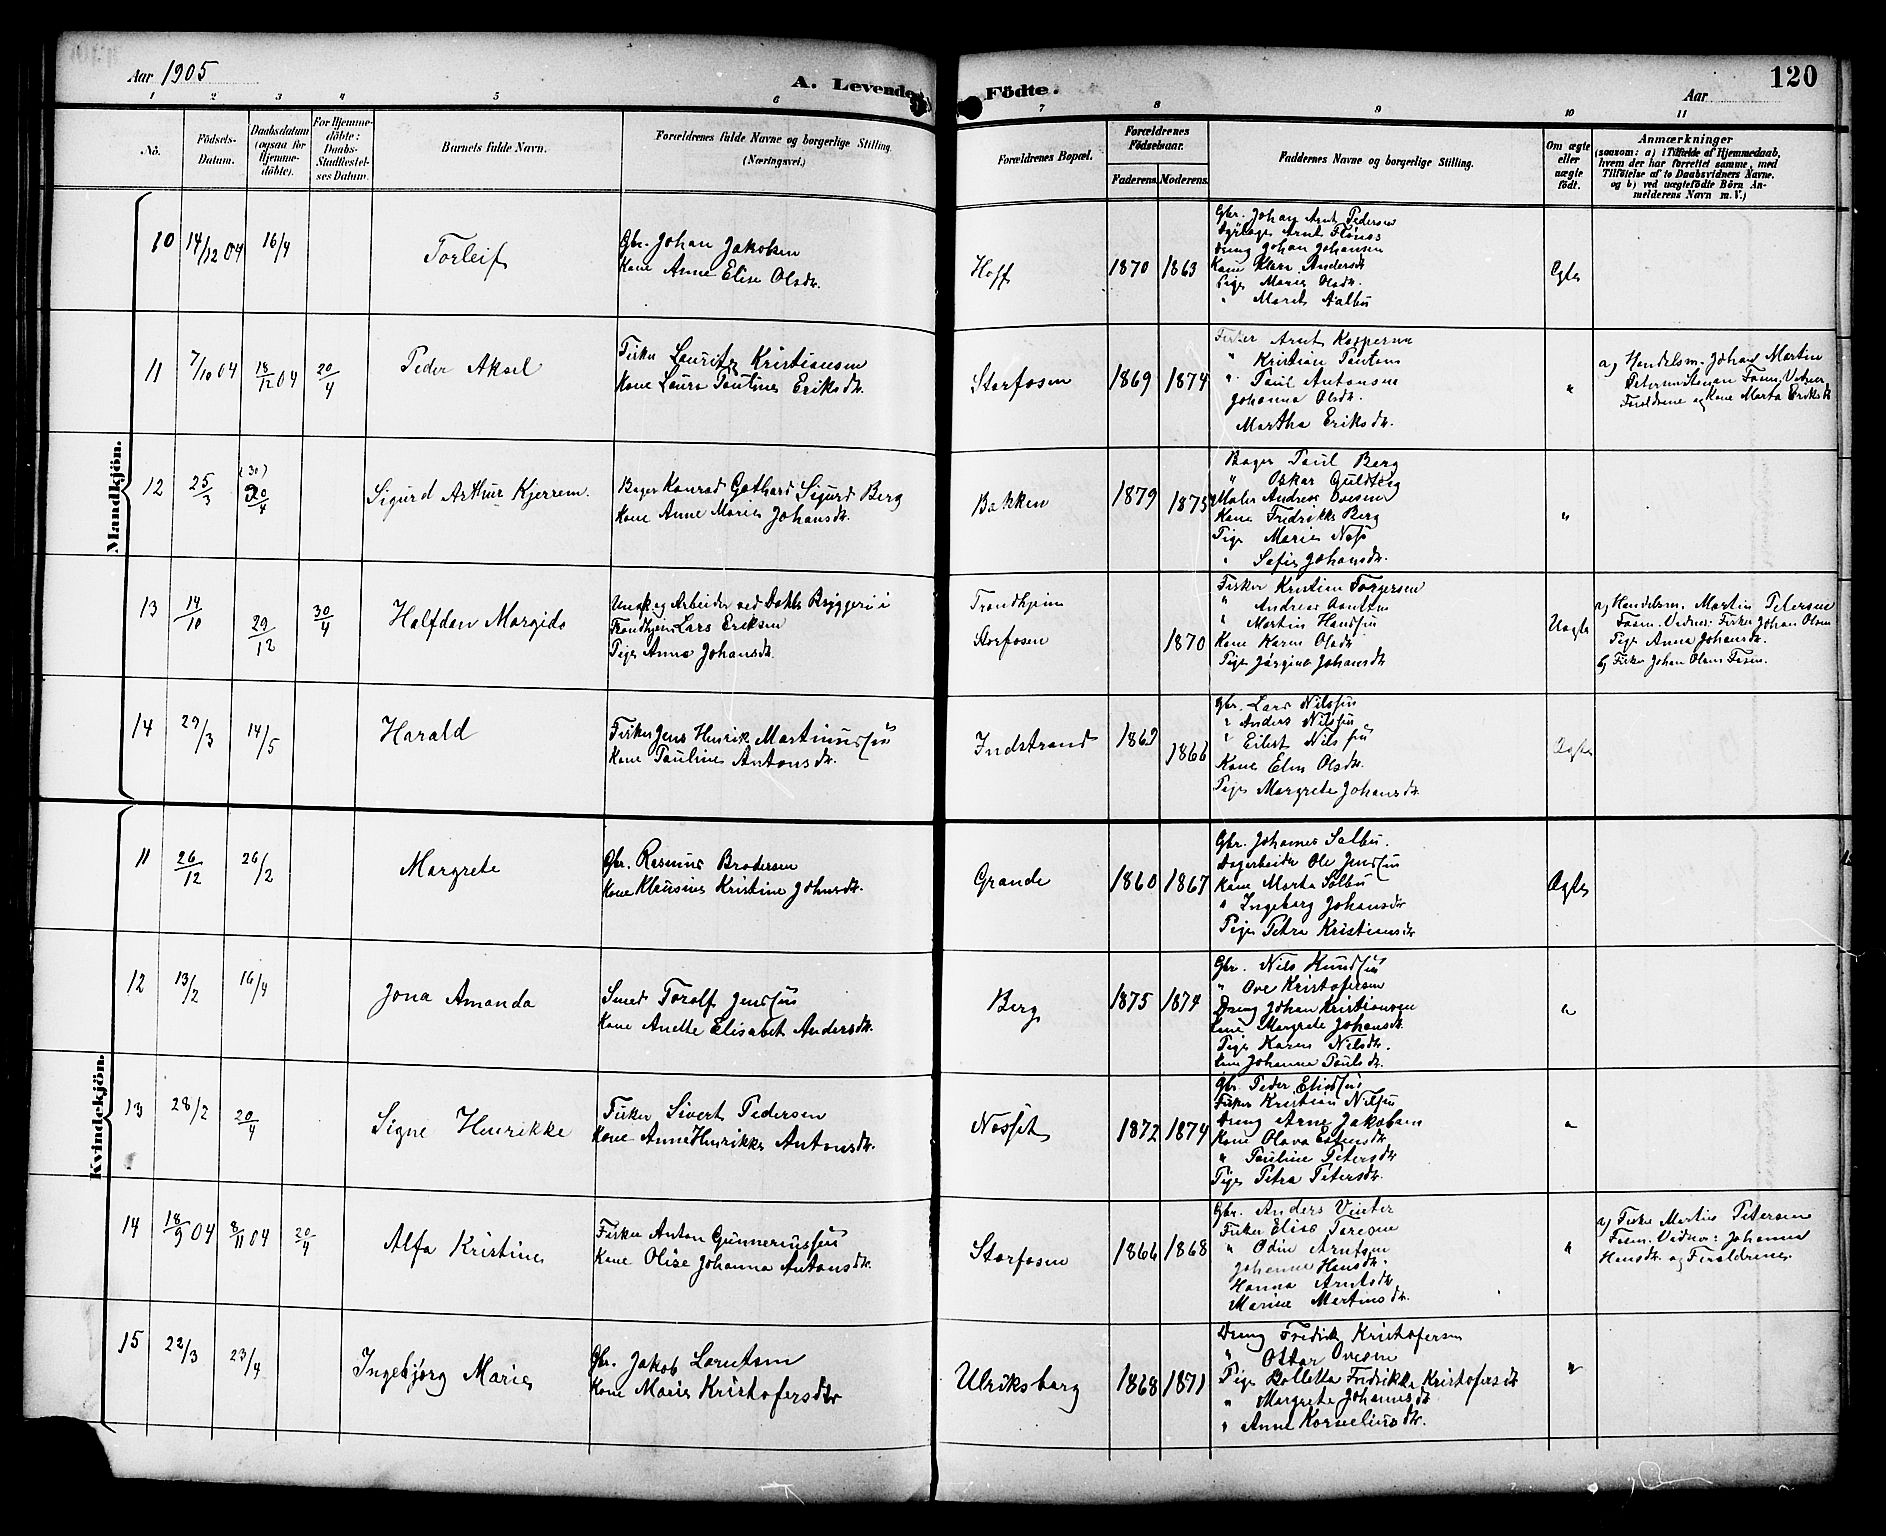 Aar 1905
A. Levende Födte.
Aar
120
1 2 3 4 5 6 7 8 9 10 11
No.
Födsels-
Datum.
Daabsdatum
(ogsaa for
Hjemme-
döbte).
For Hjemme-
döbte:
Daabs-
Stadfæstel-
ses Datum.
Barnets fulde Navn.
Forældrenes fulde Navne og borgerlige Stilling.
(Næringsvei.)
Forældrenes Bopæl.
Forældrenes
Födselsaar.
Faderens. Moderens.
Faddernes Navne og borgerlige Stilling.
Om ægte
eller
uægte
födt.
Anmærkninger
(saasom: a) i Tilfælde af Hjemmedaab,
hvem der har forrettet samme, med
Tilföielse af to Daabsvidners Navne.
og b) ved uægtefödte Börn An-
melderens Navn m. V.)
Mandkjön.
10 14/12 04 16/4
Torleif
Gbr. Johan Jakobsen
Kone Anne Elise Olsdtr.
Hoff
1870 1863
Gbr. Johan Arnt Pedersen
Arnt
Dreng Johan Johansen
Kone Andersdtr
Pige Marie Olsdtr.
" Marit Aalbu
Ægte
11 7/10 04 18/12 04 20/4
Peder Aksel
Fisker Lauritz Kristiansen
Kone Laura Pauline Eriksdtr.
Storfosen
1869 1874
Fisker Arnt Kaspersen
" Kristian
" Paul Antonsen
Johanna Olsdtr.
Martha Eriksdtr.
"
a) Handelsm. Johan Martin
Forældrene og Kone Marta Eriksdtr
12 25/3 (30) 30/4
Sigurd Arthur Kjerrem.
Bager Konrad Gothard Sigurd Berg
Kone Anne Marie Johansdtr.
Bakken
1879 1875
Bager Paul Berg
" Oskar Guldberg
Maler Andreas Ovesen
Kone Fredrikke Berg
Pige Marie
" Sofie Johansdtr.
"
13 14/10 29/12 30/4
Halfdan Margido
Ungk. og Arbeider ved Dahls Bryggeri i
Trondhjem Lars Eriksen
Pige Anna Johansdtr.
Trondhjem
Storfosen
1870
Fisker Kristian Torgersen
" Andreas
" Martin Hansen
Kone Karen Olsdtr
Pige Jørgine Johansdtr
Uægte
a) Handelsm. Martin Petersen
Fosen. Vidner: Fisker Johan Olsen
Pige Anna Johansdtr.
b) Fisker Johan Olsen Fosen.
14 29/3 14/5
Harald
Fisker Jens Henrik Martinussen
Kone Pauline Antonsdtr.
Indstrand
1869 1866
Gbr. Lars Nilssen
" Anders Nilssen
" Eilert Nilssen
Kone Elen Olsdtr.
Pige Margrete Johansdtr.
Ægte
Kvindekjön.
11 26/12 26/2
Margrete
Gbr. Rasmus Brodersen
Kone Klausine Kristine Johnsdtr.
Grande
1860 1867
Gbr. Johannes Solbu.
Dagarbeider Ole Jenssen
Kone Marta Solbu
" Ingeborg Johansdtr
Pige Petra Kristiansdtr
Ægte
12 13/2 16/4
Jona Amanda
Smed Torolf Jenssen
Kone Anette Elisabet Andersdtr.
Berg
1875 1874
Gbr. Nils Knudsen
" Ove Kristofersen
Dreng Johan Kristiansen
Kone Margrete Johansdtr.
Pige Karen Nilsdtr.
Johanna Paulsdtr.
"
13 28/2 20/4
Signe Henrikke
Fisker Sivert Pedersen
Kone Anne Henrikke Antonsdtr.
Nesset
1872 1874
Gbr. Peder
Fisker Kristian Nilsen
Dreng Arne Jakobsen
Kone Olava Estensdtr.
" Pauline Petersdtr
Pige Petra Petersdtr.
"
14 18/9 04 8/11 04 20/4
Alfa Kristine
Fisker Anton Gunneriussen
Kone Olise Johanna Antonsdtr.
Storfosen
1866 1868
Gbr. Anders Vinter
Fisker Elias
" Odin Arntsen
Johanna Hansdtr.
Hanna Arntsdtr
Marine Martinsdtr.
"
a) Fisker Martin Petersen
Fosen. Vidner: Johanna
Hansdtr. og Forældrene.
15 22/3 23/4
Ingebjørg Marie
Gbr. Jakob Lorntsen
Kone Marie Kristofersdtr
Ulriksborg
1868 1871
Dreng Fredrik Kristofersen
" Ottar Ovesen
Pige Bolletta Fredrikke Kristofersdtr
" Margrete Johannesdtr
" Anne Korneliusdtr.
"